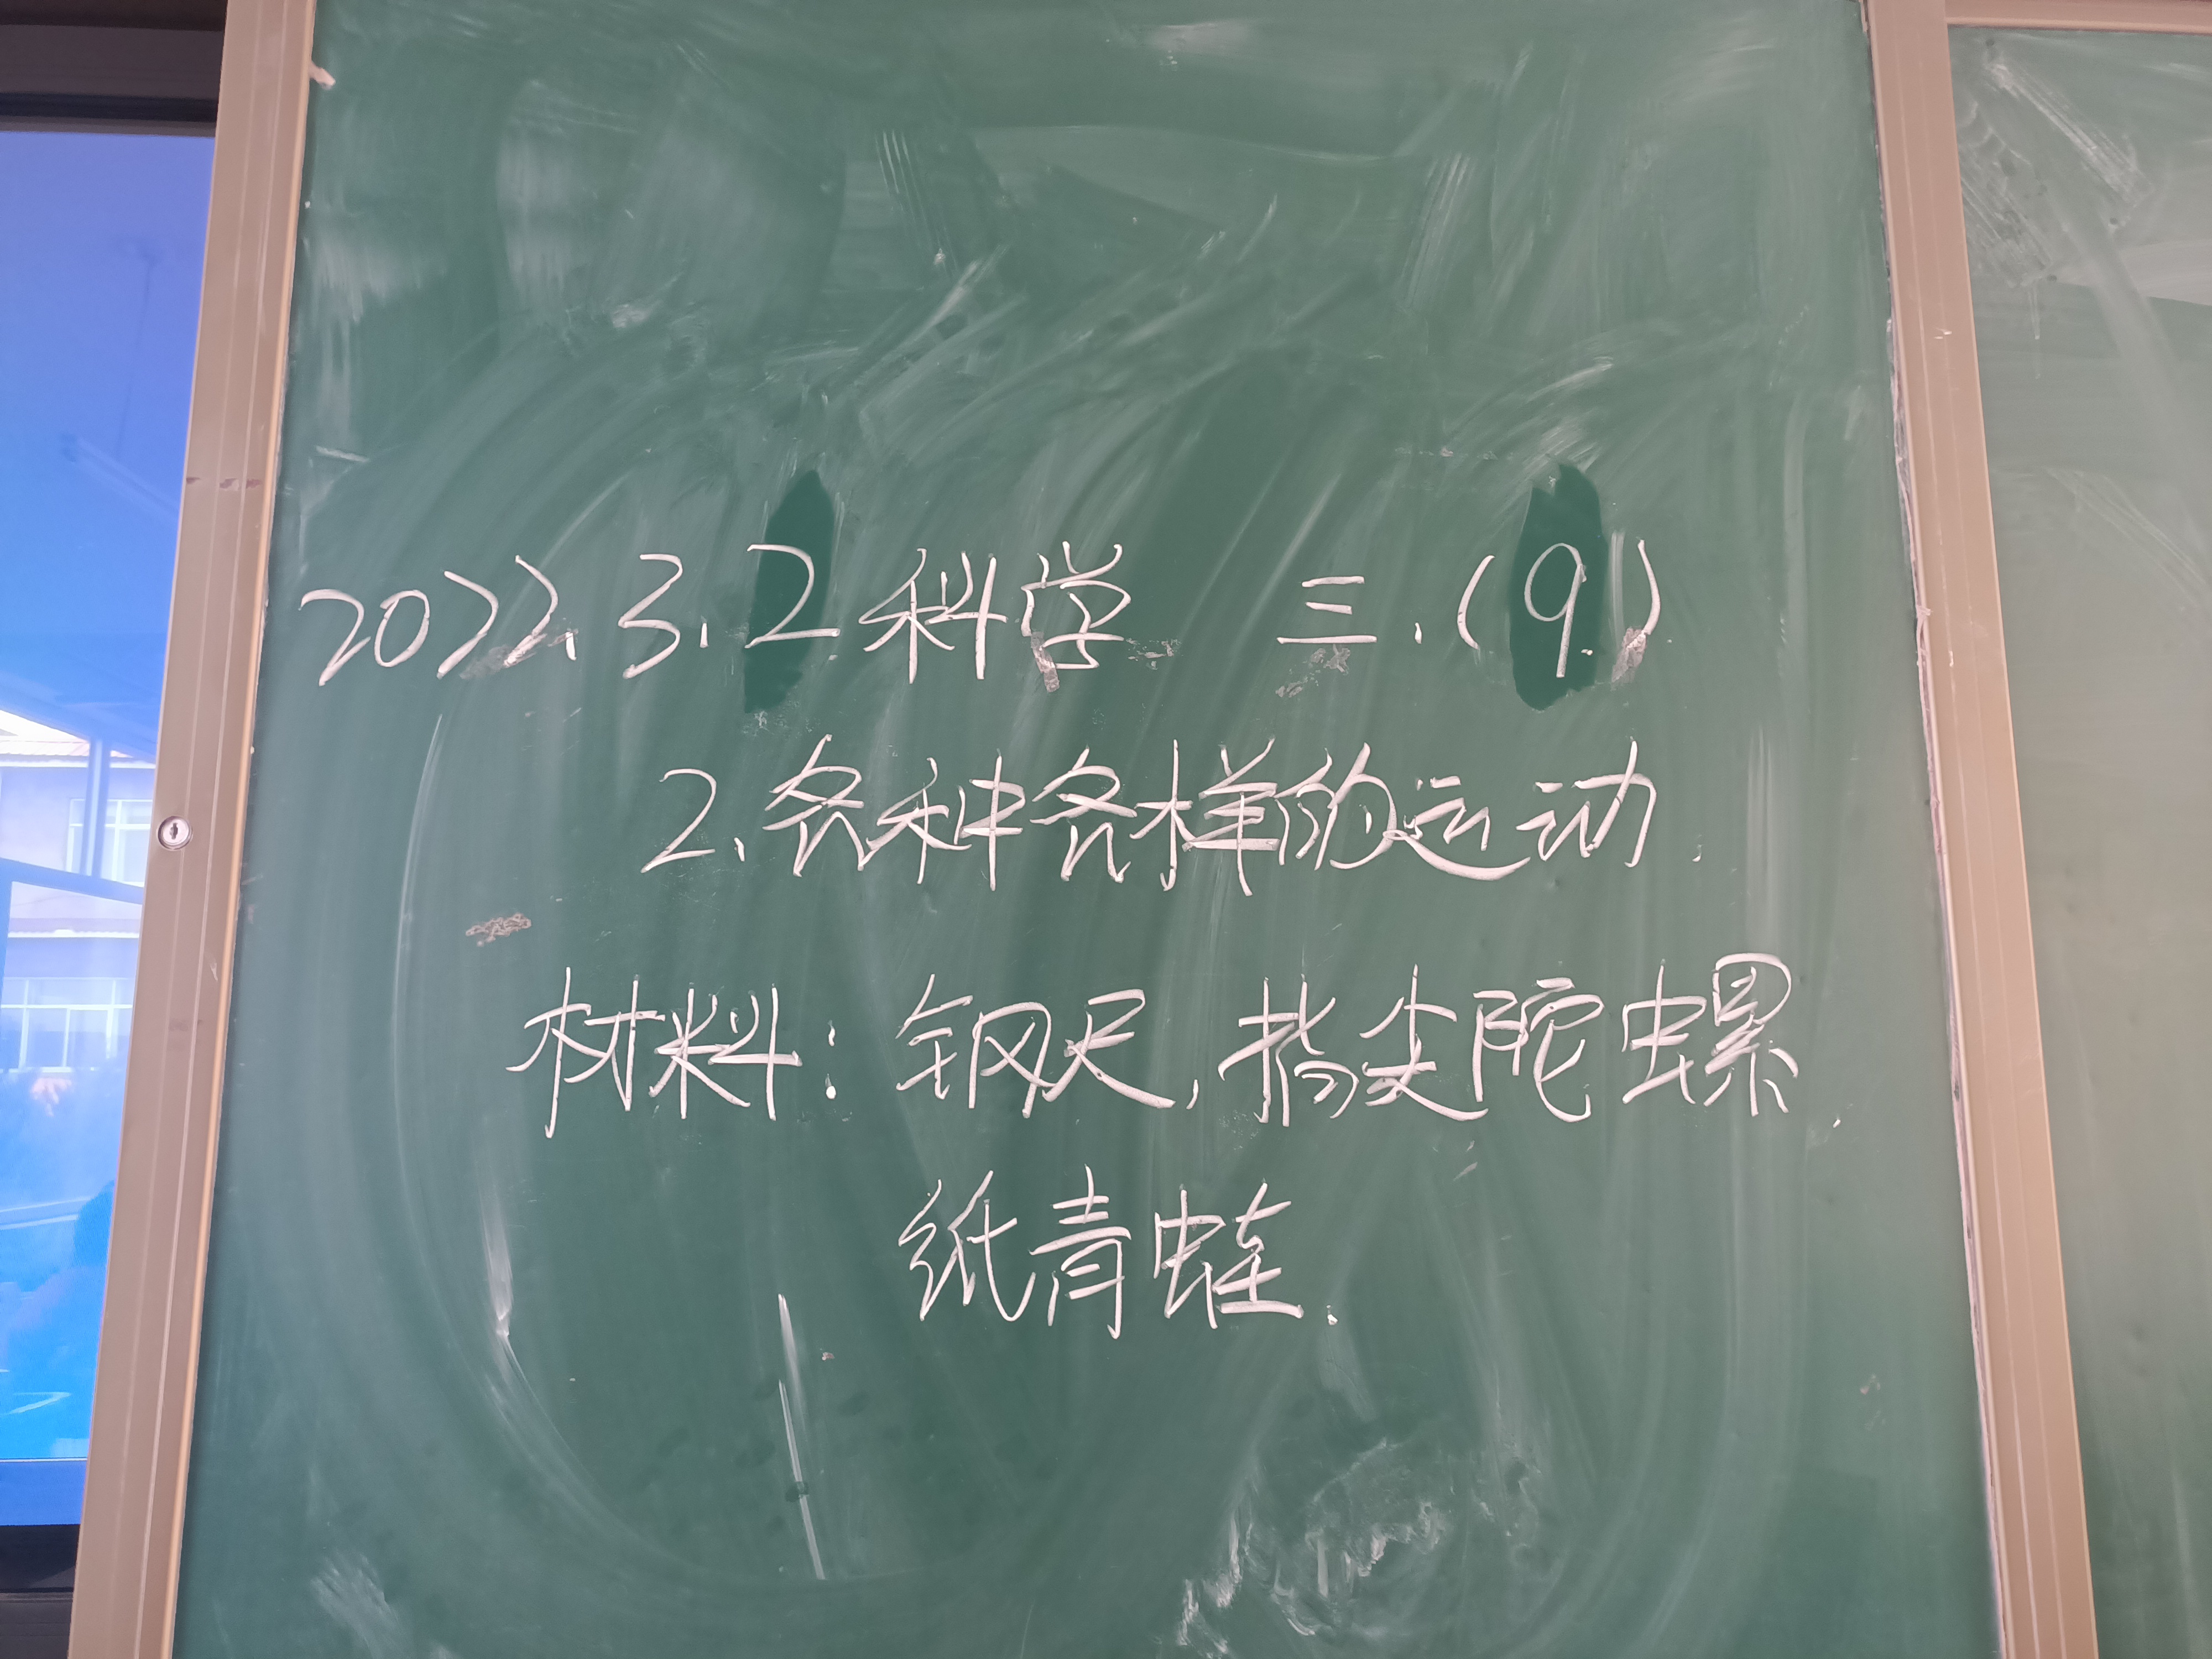 2022.3.2科学 三.(9)
2.各种各样的运动.
材料:钢尺,指尖陀螺
纸青蛙.